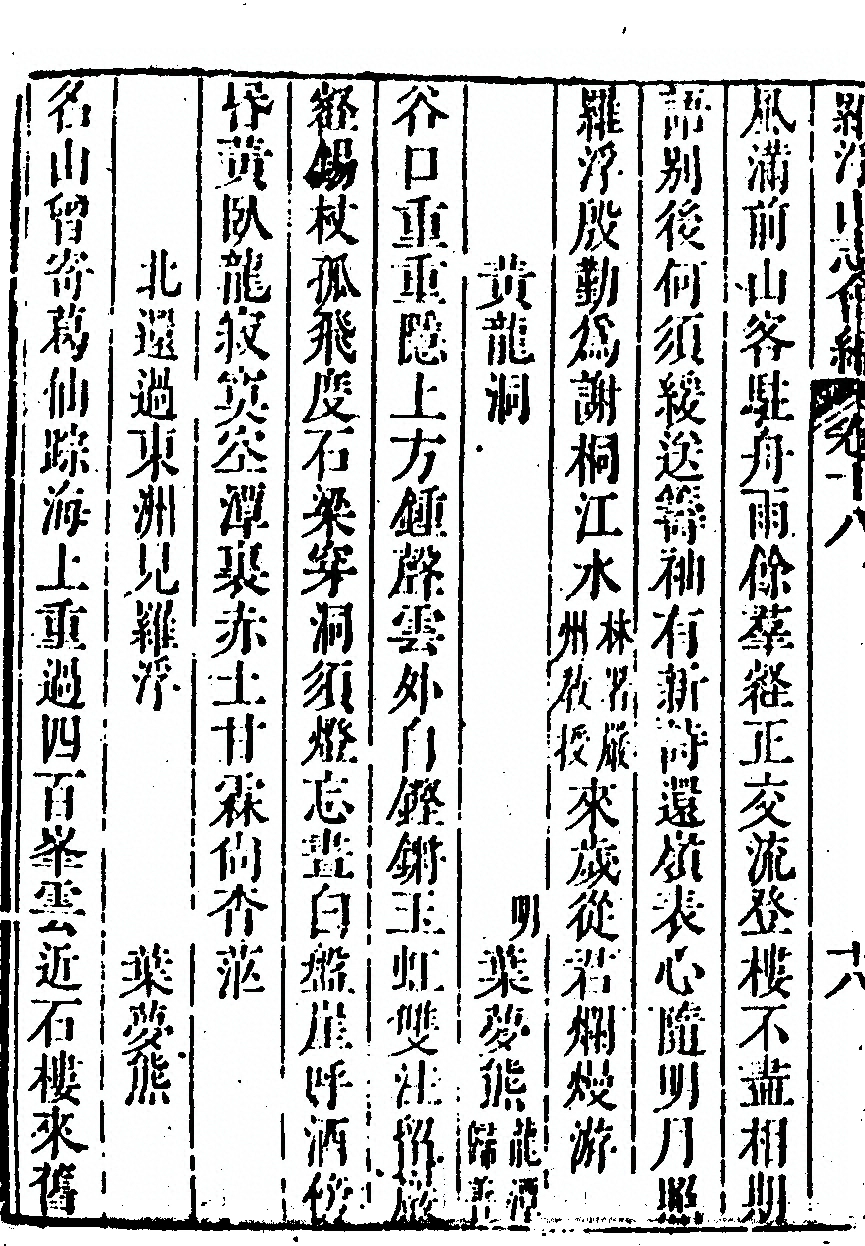 羅浮山志會編　卷十八　十八
風滿前山客駐舟雨餘羣壑正交流登樓不盡相期
語別後何須緩送籌袖有新詩還嶺表心隨明月照
羅浮殷勤為謝桐江水林君嚴州教授來歲從君爛熳游
黃龍洞　明葉夢熊龍潭歸善
谷口重重隱上方鍾聲雲外自鏗鏘玉虹雙注臨巖
壑錫杖孤飛度石梁穿洞須燈忘晝白盤崖呼酒傍
昏黃臥龍寂寞空潭裏赤土甘霖尚杳茫
北還過東洲見羅浮　葉夢熊
名山曾寄葛仙踪海上重過四百峯雲近石樓來舊